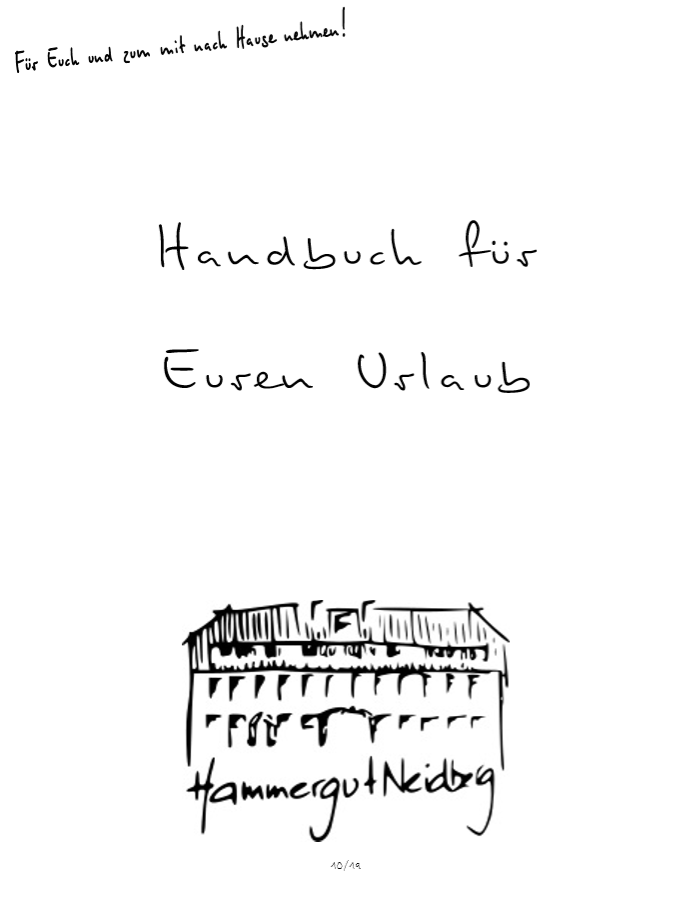 Für Euch und zum mit nach Hause nehmen!
Handbuch für
Euren Urlaub
Hammergut Neidberg
10/19